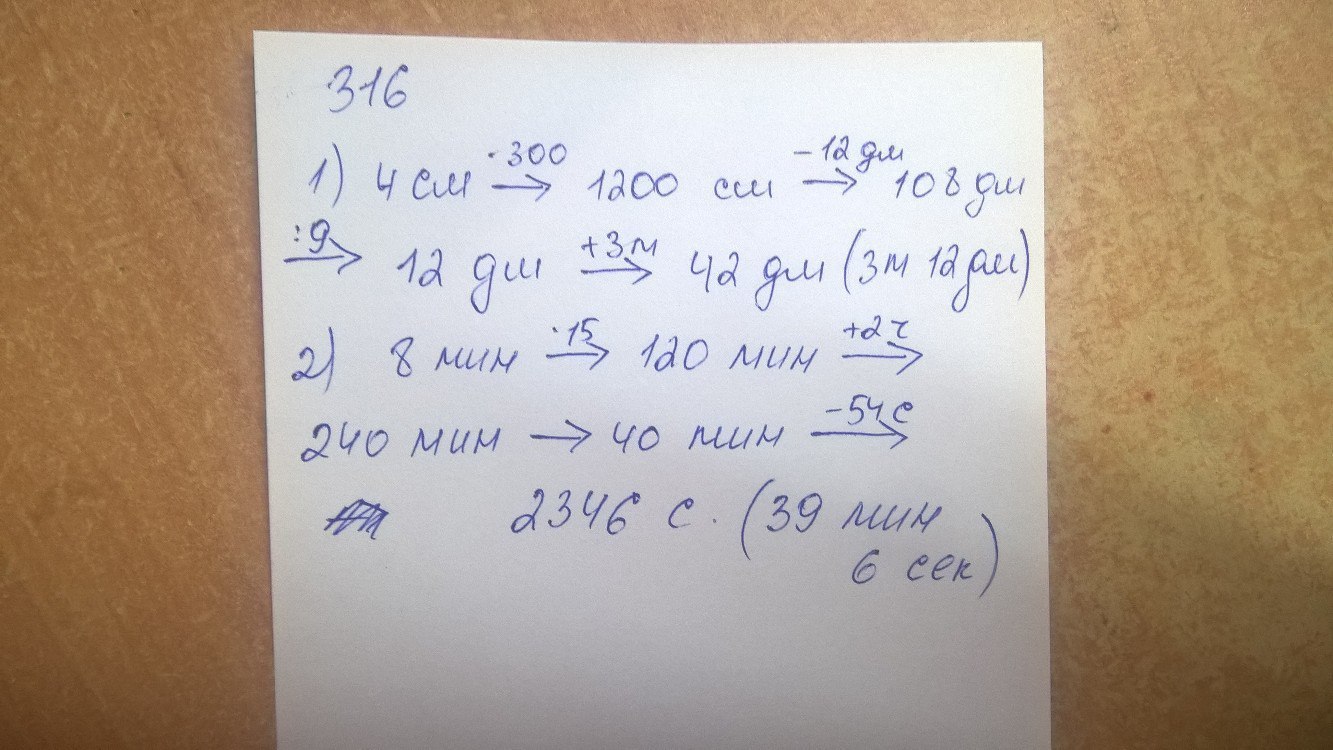 316
1) 4 см ·300 → 1200 см −12 дм → 108 дм
:9 → 12 дм +3м → 42 дм (3м 12дм)
2) 8 мин ·15 → 120 мин +2ч →
240 мин → 40 мин −54 с →
2346 с. (39 мин
6 сек)